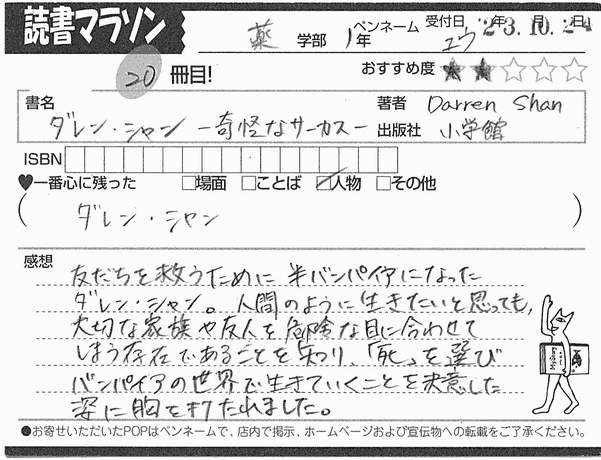 読書マラソン
薬 学部 1年 ペンネーム ユウ 受付日 23年10月24日
20 冊目! おすすめ度 ★★☆☆☆
書名 著者 Darren Shan
ダレン・シャン ー奇怪なサーカスー 出版社 小学館
ISBN
♥一番心に残った □場面 □ことば ☑人物 □その他
( ダレン・シャン )
感想
友だちを救うために半バンパイアになった
ダレン・シャン。人間のように生きたいと思っても、
大切な家族や友人を危険な目に合わせて
しまう存在であることを知り、「死」を選び
バンパイアの世界で生きていくことを決意した
姿に胸を打たれました。
●お寄せいただいたPOPはペンネームで、店内で掲示、ホームページおよび宣伝物への転載をご了承ください。